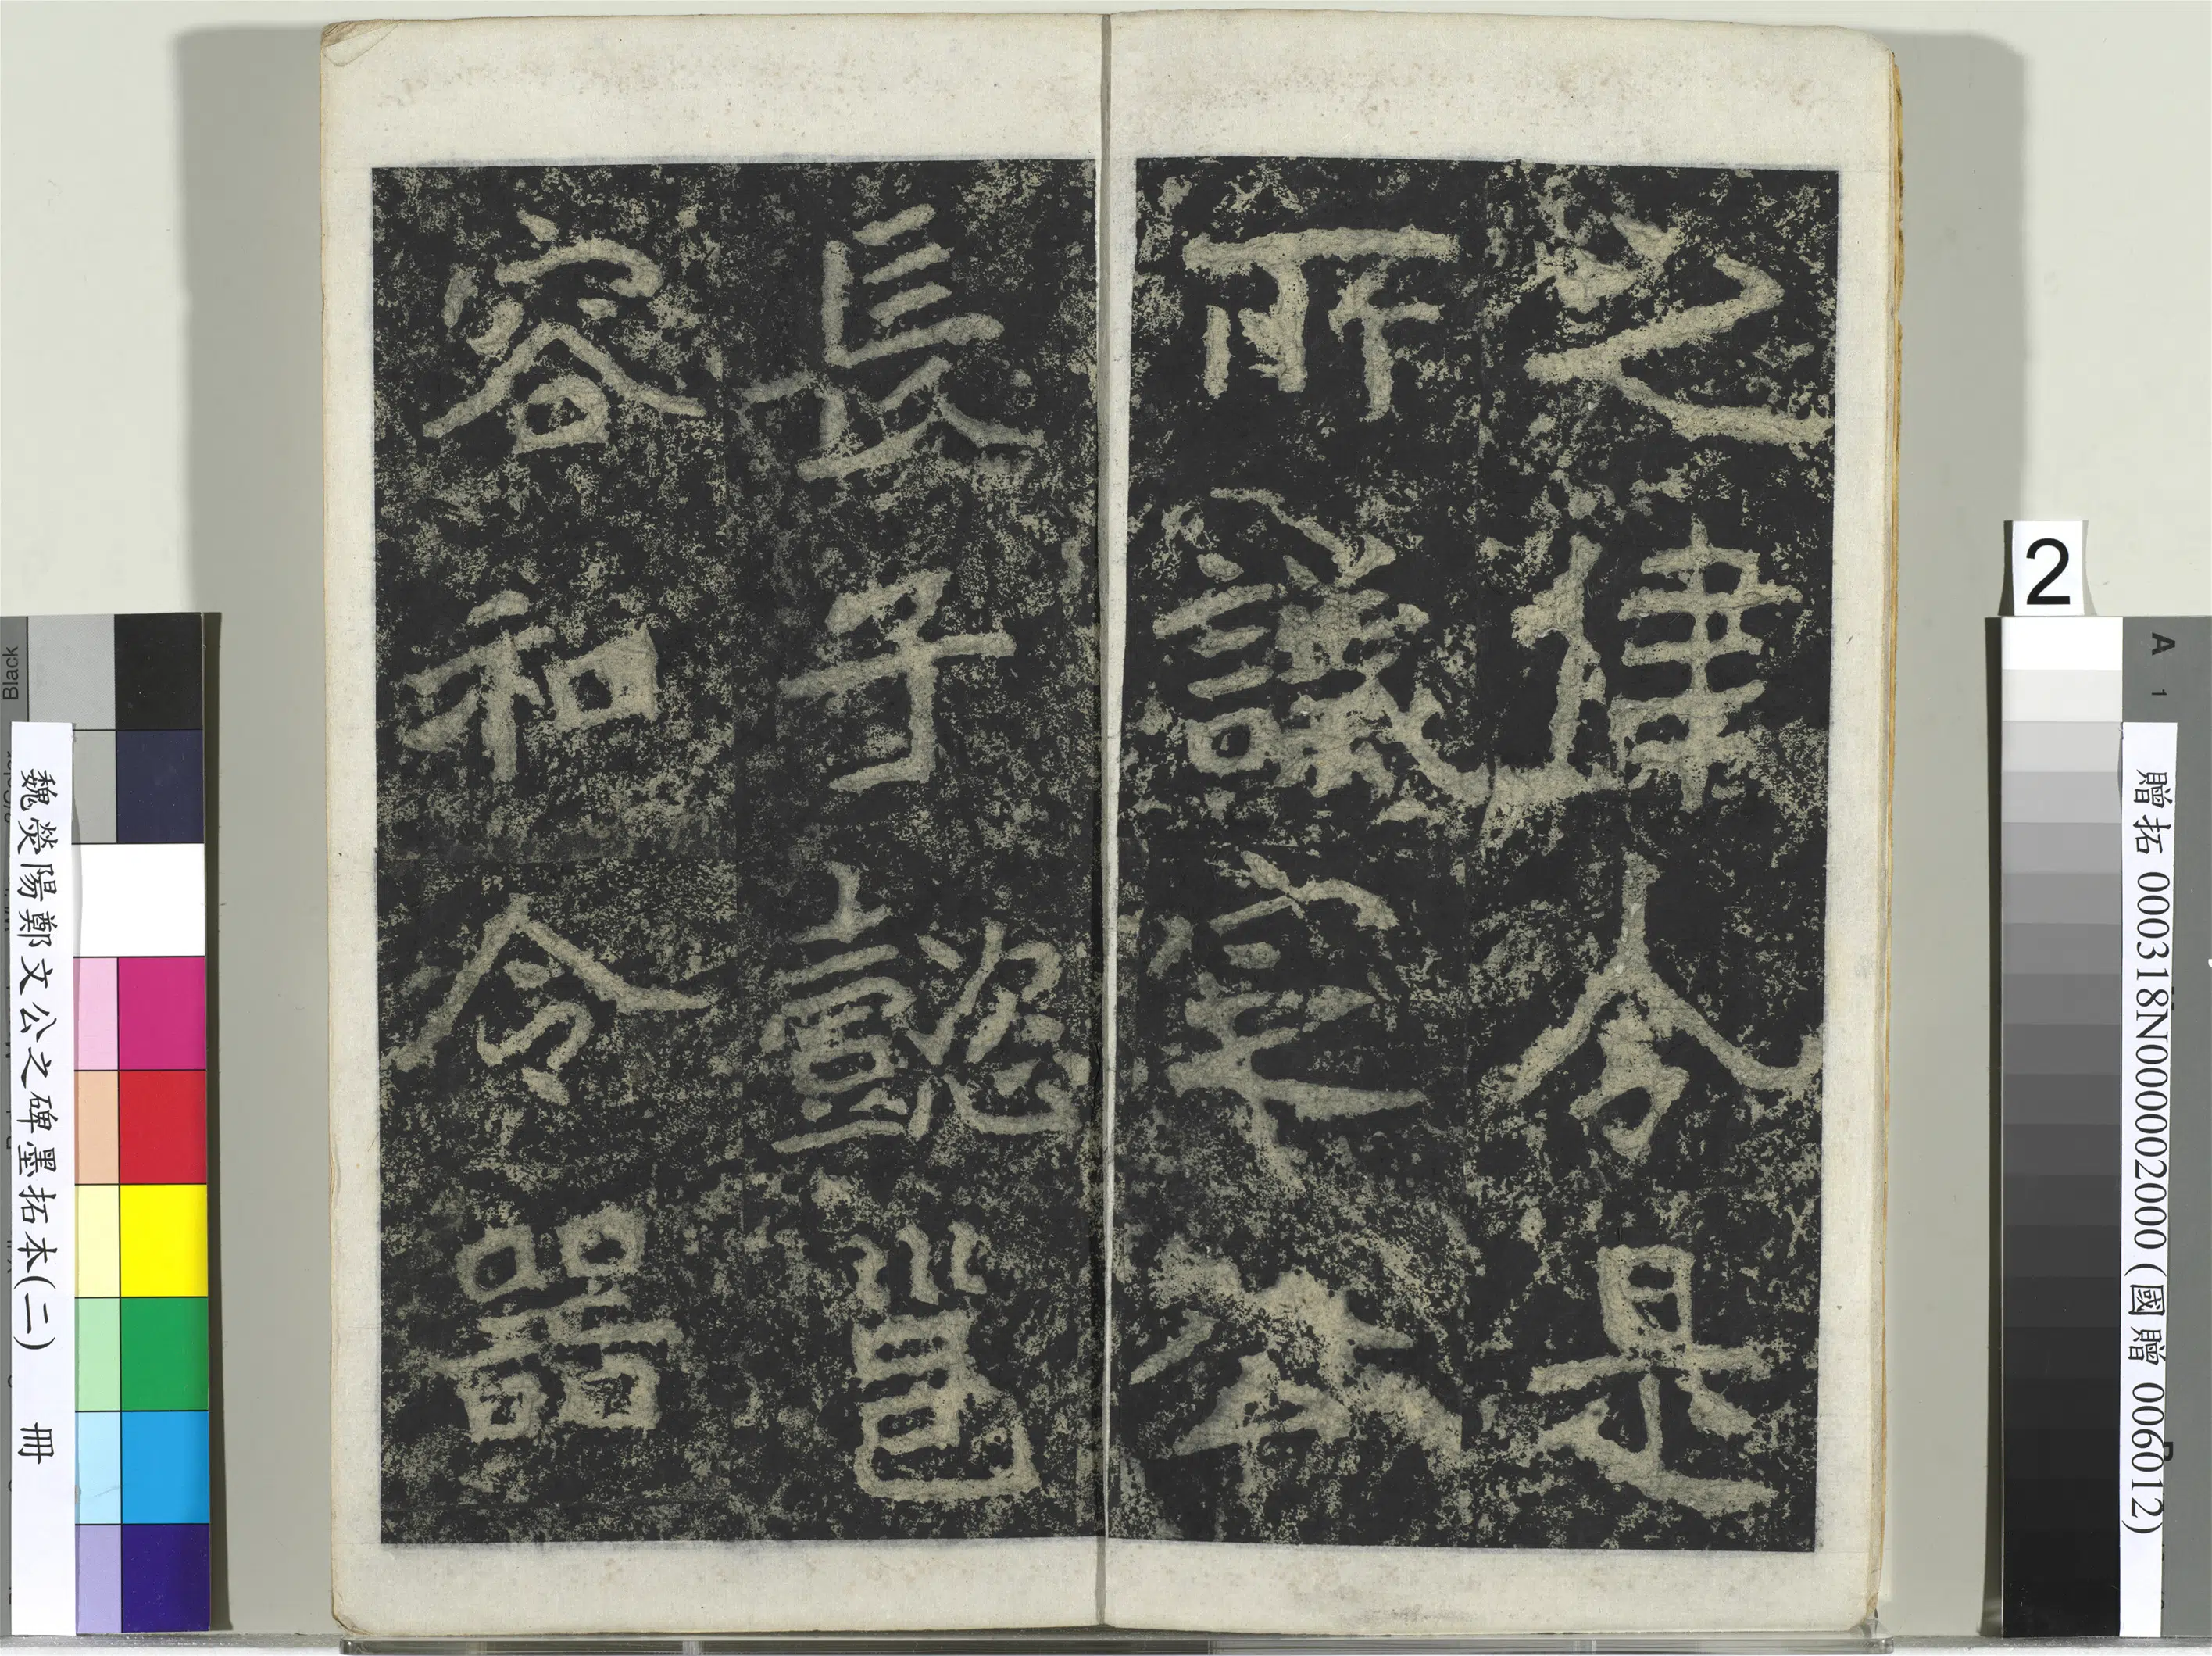 之律令是
所議定本
長子懿邕
容和令器
魏熒陽鄭文公之碑墨拓本(二) 冊
贈拓 000318N000002000 (國贈 006012)
2
A 1
Black